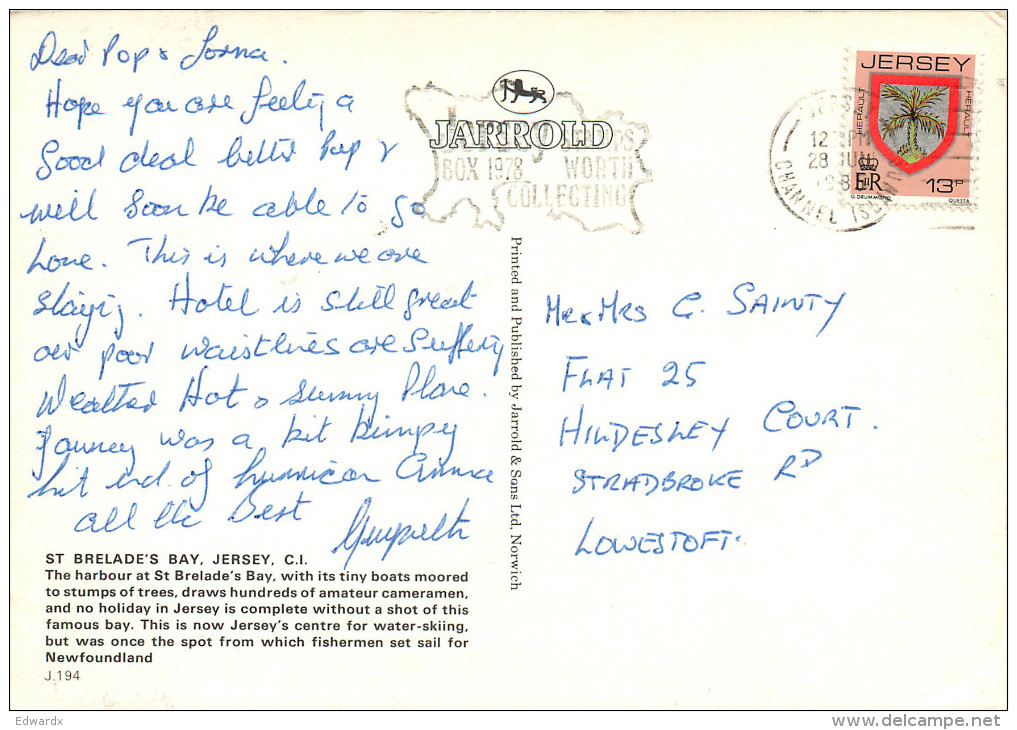 Dear Pop & Lorna.
Hope you are feeling a
Good deal better Pop &
will soon be able to go
home. This is where we are
staying. Hotel is still great
our poor waistlines are suffering
Weather Hot & sunny Plane.
Journey was a bit bumpy
hit end of hurrican
all the Best
ST BRELADE'S BAY, JERSEY, C.I.
The harbour at St Brelade's Bay, with its tiny boats moored
to stumps of trees, draws hundreds of amateur cameramen,
and no holiday in Jersey is complete without a shot of this
famous bay. This is now Jersey's centre for water-skiing,
but was once the spot from which fishermen set sail for
Newfoundland
J.194
JARROLD
BOX 1978 WORTH
COLLECTING
Printed and Published by Jarrold & Sons Ltd, Norwich
12 PM
28 JUN
CHANNEL ISLANDS
JERSEY
HERAULT
HERAULT
E II R
13P
G. DRUMMOND QUESTA
Mr & Mrs C. SAINTY
FLAT 25
HILDESLEY COURT.
STRADBROKE RD
LOWESTOFT.
Edwardx
delcampe.net